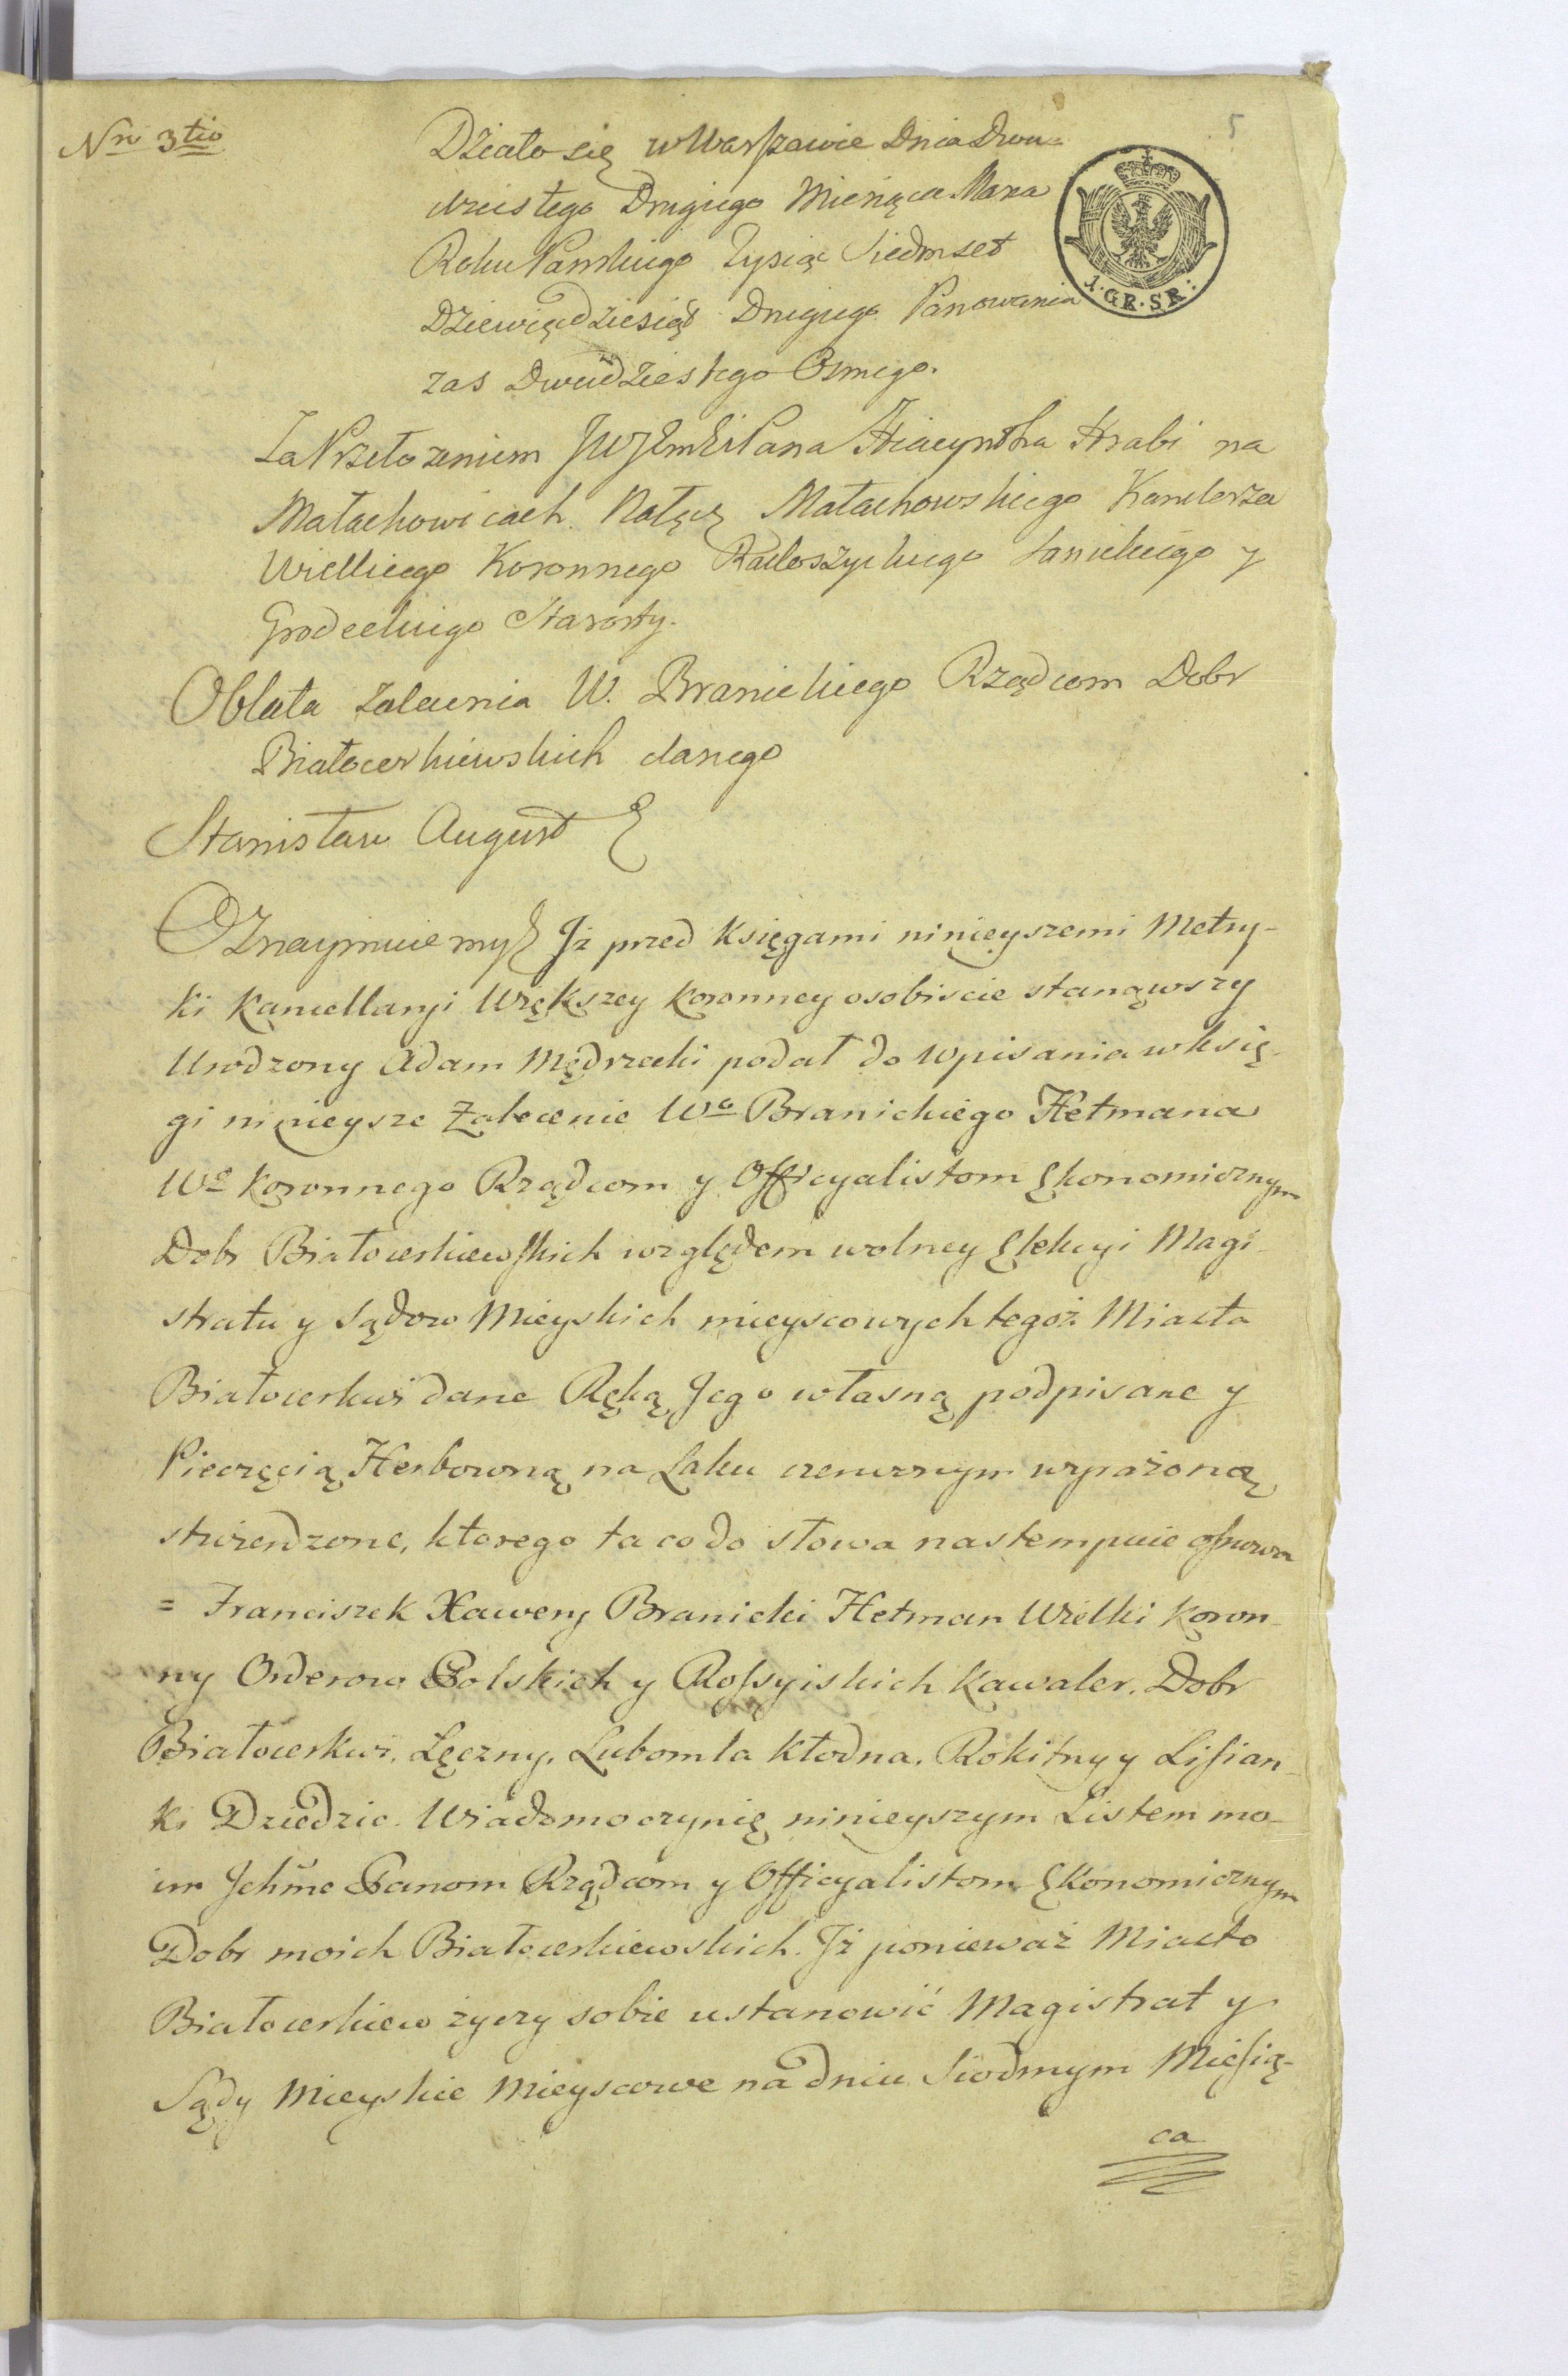 Nro 3tio
5
Działo się w Warszawie Dnia Dwu-
dziestego Drugiego Miesiąca Marca
Roku Pańskiego Tysiąc Siedmset
Dziewiędziesiąt Drugiego Panowania
zas Dwudziestego Osmego.
1. GR. SR:
Za Przełozeniem JWJEmści Pana Hiacyntha Hrabi na
Małachowicach Nałęcz Małachowskiego Kanclerza
Wielkiego Koronnego Radoszyckiego Sanickiego y
Grodeckiego Starosty.
Oblata Zalecenia W. Branickiego Rządcom Dobr
Białocerkiewskich danego
Stanisław August
Oznaymuiemy Jż przed Księgami ninieyszemi Metry-
ki Kancellaryi Większey Koronney osobiscie stanąwszy
Urodzony Adam Mędrzecki podał do wpisania w księ-
gi ninieysze Zalecenie Wo Branickiego Hetmana
Wo Koronnego Rządcom y Officyalistom Ekonomicznym
Dobr Białocerkiewskich względem wolney Elekcyi Magi-
stratu y Sądow Mieyskich mieyscowych tegoż Miasta
Białocerkwi dane Ręką Jego własną podpisane y
Pieczęcią Herbowną na Laku czerwonym wyrażoną
stwierdzone, ktorego ta co do słowa nastempuie osnowa
= Franciszek Xawery Branicki Hetman Wielki Koron-
ny Orderow Polskich y Rossyiskich Kawaler. Dobr
Białocerkwi, Łęczny, Lubomla Kłodna, Rokitny y Lisian-
ki Dziedzic. Wiadomo czynię ninieyszym Listem mo-
im Jchmc Panom Rządcom y Officyalistom Ekonomicznym
Dobr moich Białocerkiewskich. Jż ponieważ Miasto
Białocerkiew życzy sobie ustanowić Magistrat y
Sądy Mieyskie Mieyscowe na dniu Siodmym Miesią-
ca